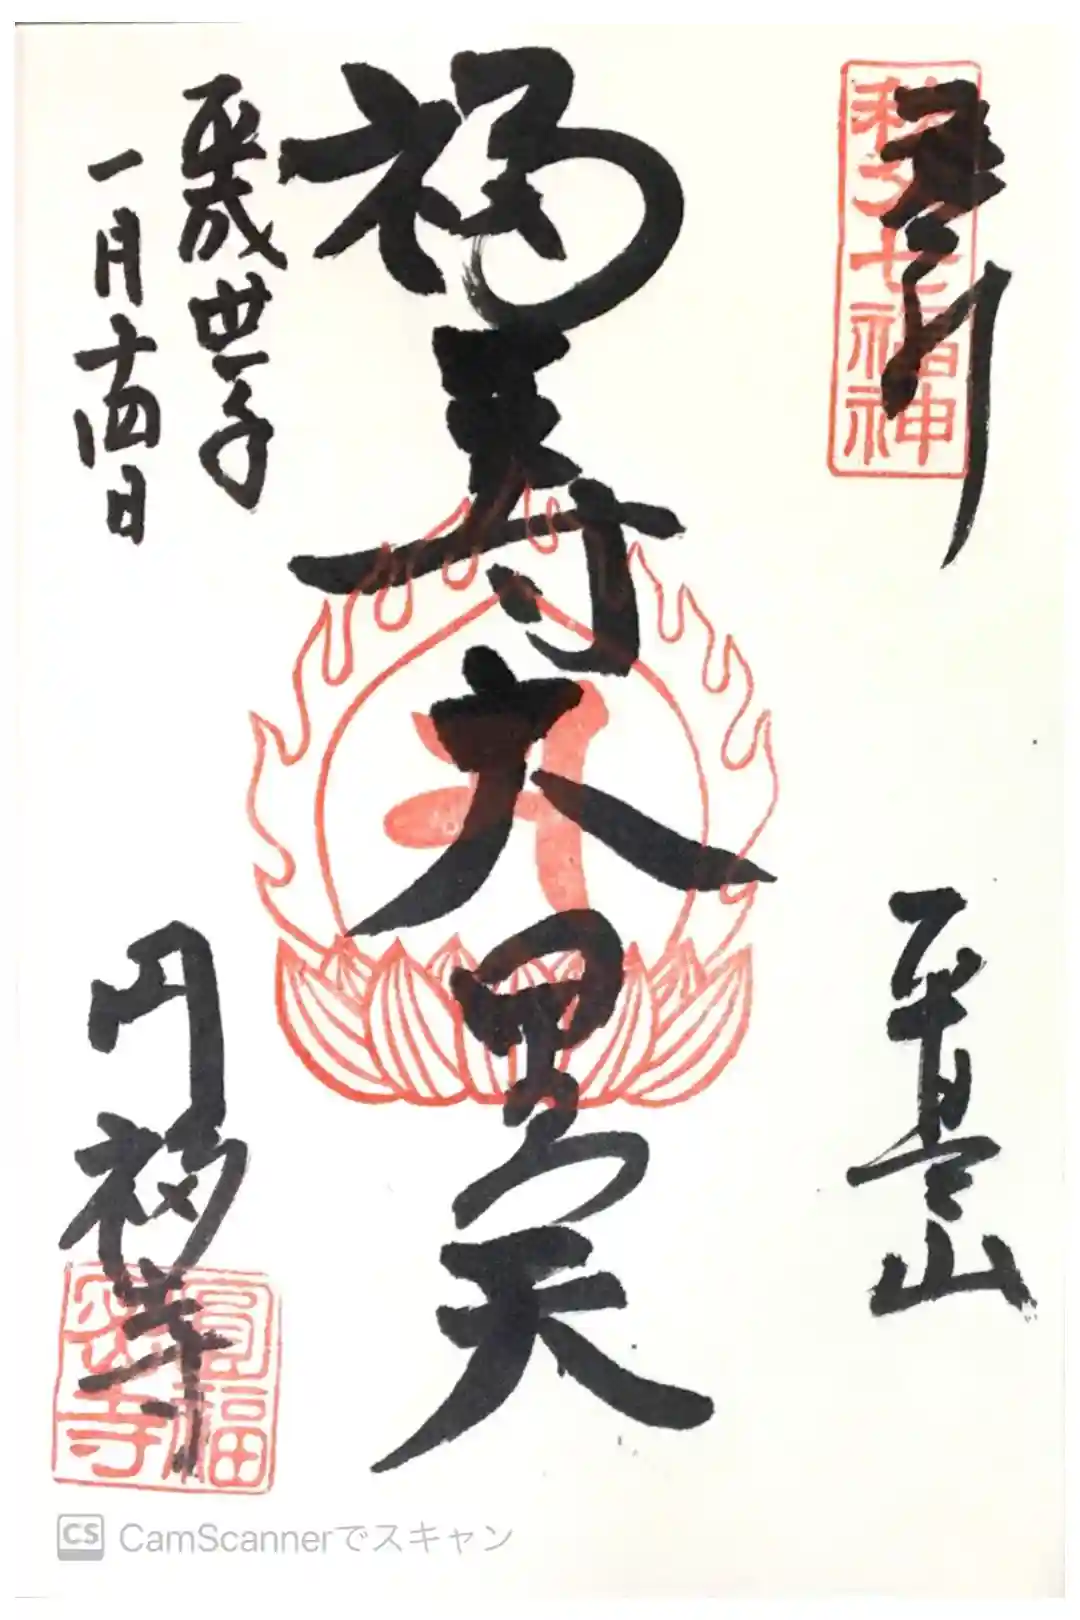 奉拝
秩父七福神
平基山
福寿大黒天
平成丗年
一月十四日
円福寺
圓福寺
CS CamScannerでスキャン